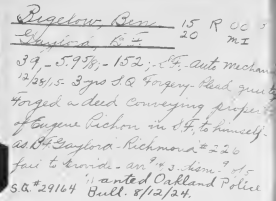 Bigelow, Ben 15 R OO 3
Gaylord, B F 20 M I
39, - 5.9 5/8; - 152; S.F. Auto Mechanic
12/28/15 - 3 yrs S.Q. Forgery - Plead. guilty
Forged a deed conveying property
of Eugene Pichon in S.F. to himself.
as B F Gaylord - Richmond # 226
fail to provide - an
S.Q. # 29164 Wanted Oakland Police
Bull. 8/12/24.